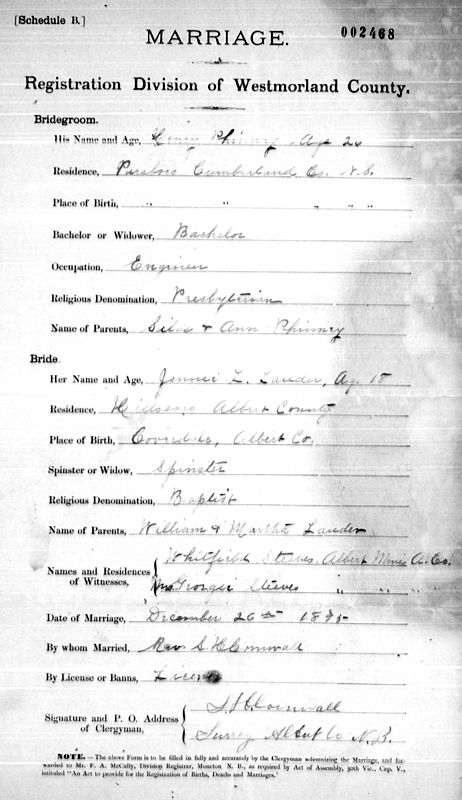 [Schedule B.]
002468
MARRIAGE.
Registration Division of Westmorland County.
Bridegroom.
His Name and Age, Henry Phinney Age 26
Residence, Parsboro Cumberland Co. N.S.
Place of Birth, " " " " "
Bachelor or Widower, Bachelor
Occupation, Engineer
Religious Denomination, Presbyterian
Name of Parents, Silas & Ann Phinney
Bride.
Her Name and Age, Jennie L. Lauder, Age 18
Residence, Hillsboro Albert County
Place of Birth, Coverdale, Albert Co.
Spinster or Widow, Spinster
Religious Denomination, Baptist
Name of Parents, William & Martha Lauder
Names and Residences of Witnesses, Whitfield Steeves, Albert Mines A. Co.
Mrs Georgie Steeves " " "
Date of Marriage, December 26th
By whom Married, Rev. S. H. Cornwall
By License or Banns, License
Signature and P. O. Address of Clergyman, S. H. Cornwall
Surrey Albert Co N.B.
NOTE.—The above Form is to be filled in fully and accurately by the Clergyman solemnizing the Marriage, and forwarded to Mr. F. A. McCully, Division Registrar, Moncton N. B., as required by Act of Assembly, 50th Vic., Cap. V., intituled "An Act to provide for the Registration of Births, Deaths and Marriages."